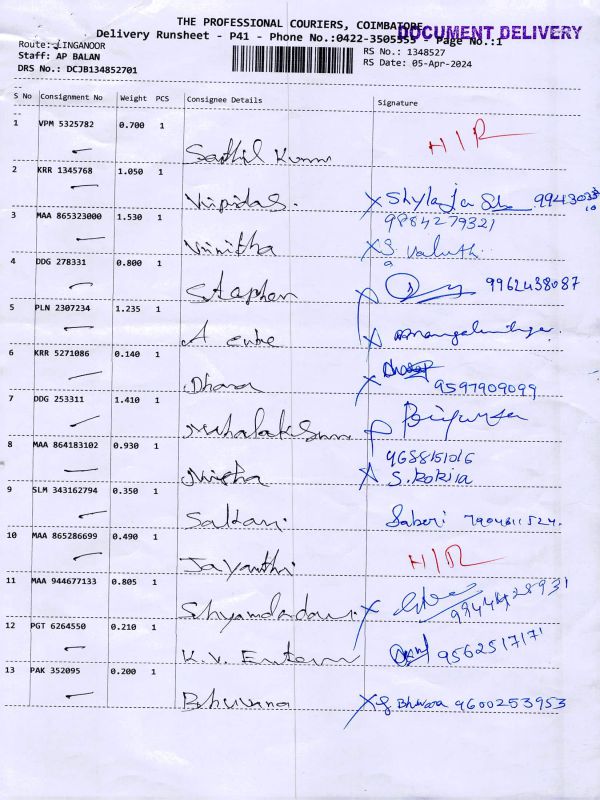 THE PROFESSIONAL COURIERS, COIMBATORE
DOCUMENT DELIVERY
Delivery Runsheet - P41 - Phone No.:0422-3505555 - Page No.:1
Route: LINGANOOR
RS No.: 1348527
Staff: AP BALAN
RS Date: 05-Apr-2024
DRS No.: DCJB134852701
S No Consignment No Weight PCS Consignee Details Signature
1 VPM 5325782 0.700 1
Sathil Kumar H/R
2 KRR 1345768 1.050 1
Nipidas. Shylaja
3 MAA 865323000 1.530 1 9884279321
Vinitha S.
4 DDG 278331 0.800 1
Stephen 9962438087
5 PLN 2307234 1.235 1
A
6 KRR 5271086 0.140 1
Dhana 9597909099
7 DDG 253311 1.410 1
Mahalakshmi
8 MAA 864183102 0.930 1 9688151016
Nisha S. Kokila
9 SLM 343162794 0.350 1
Saberi
10 MAA 865286699 0.490 1
Jayanthi H/R
11 MAA 944677133 0.805 1
12 PGT 6264550 0.210 1
K.V. 9562517171
13 PAK 352095 0.200 1
Bhuvana 9600253953